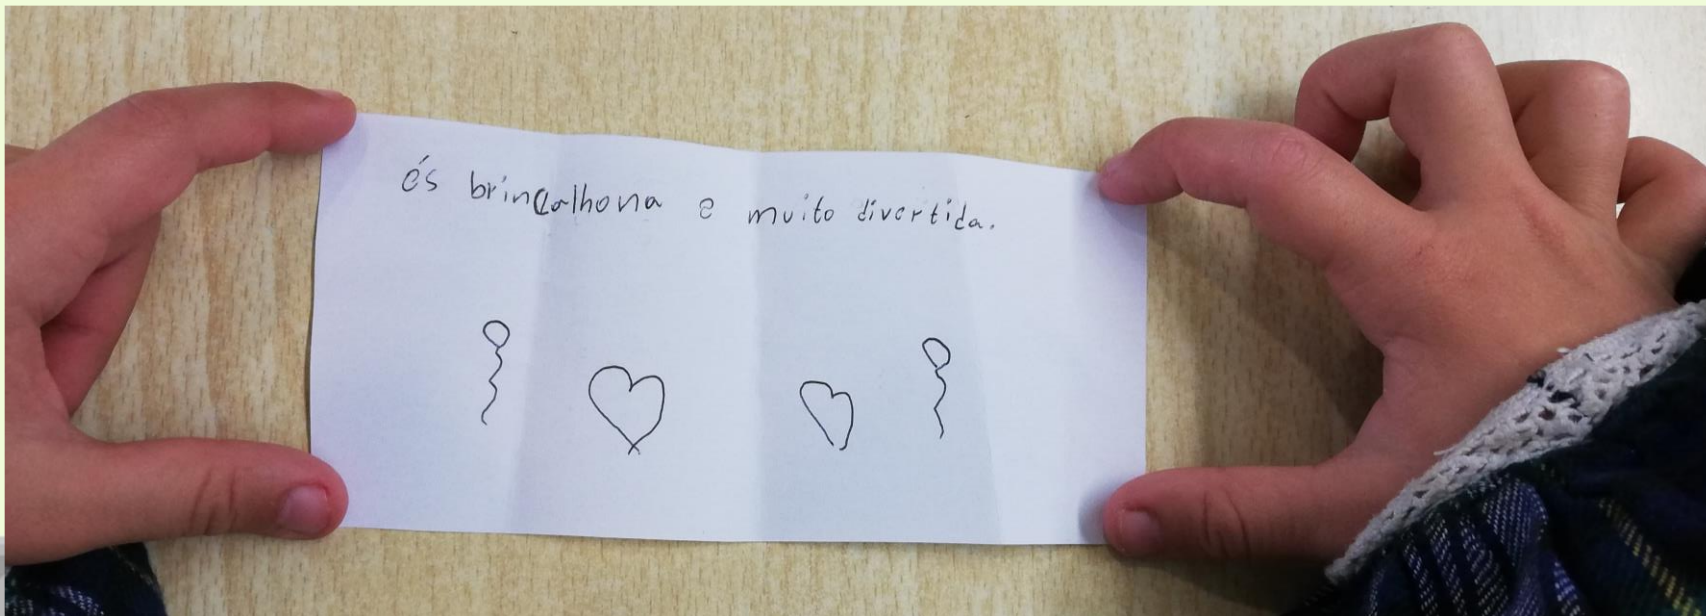 és brincalhona e muito divertida.